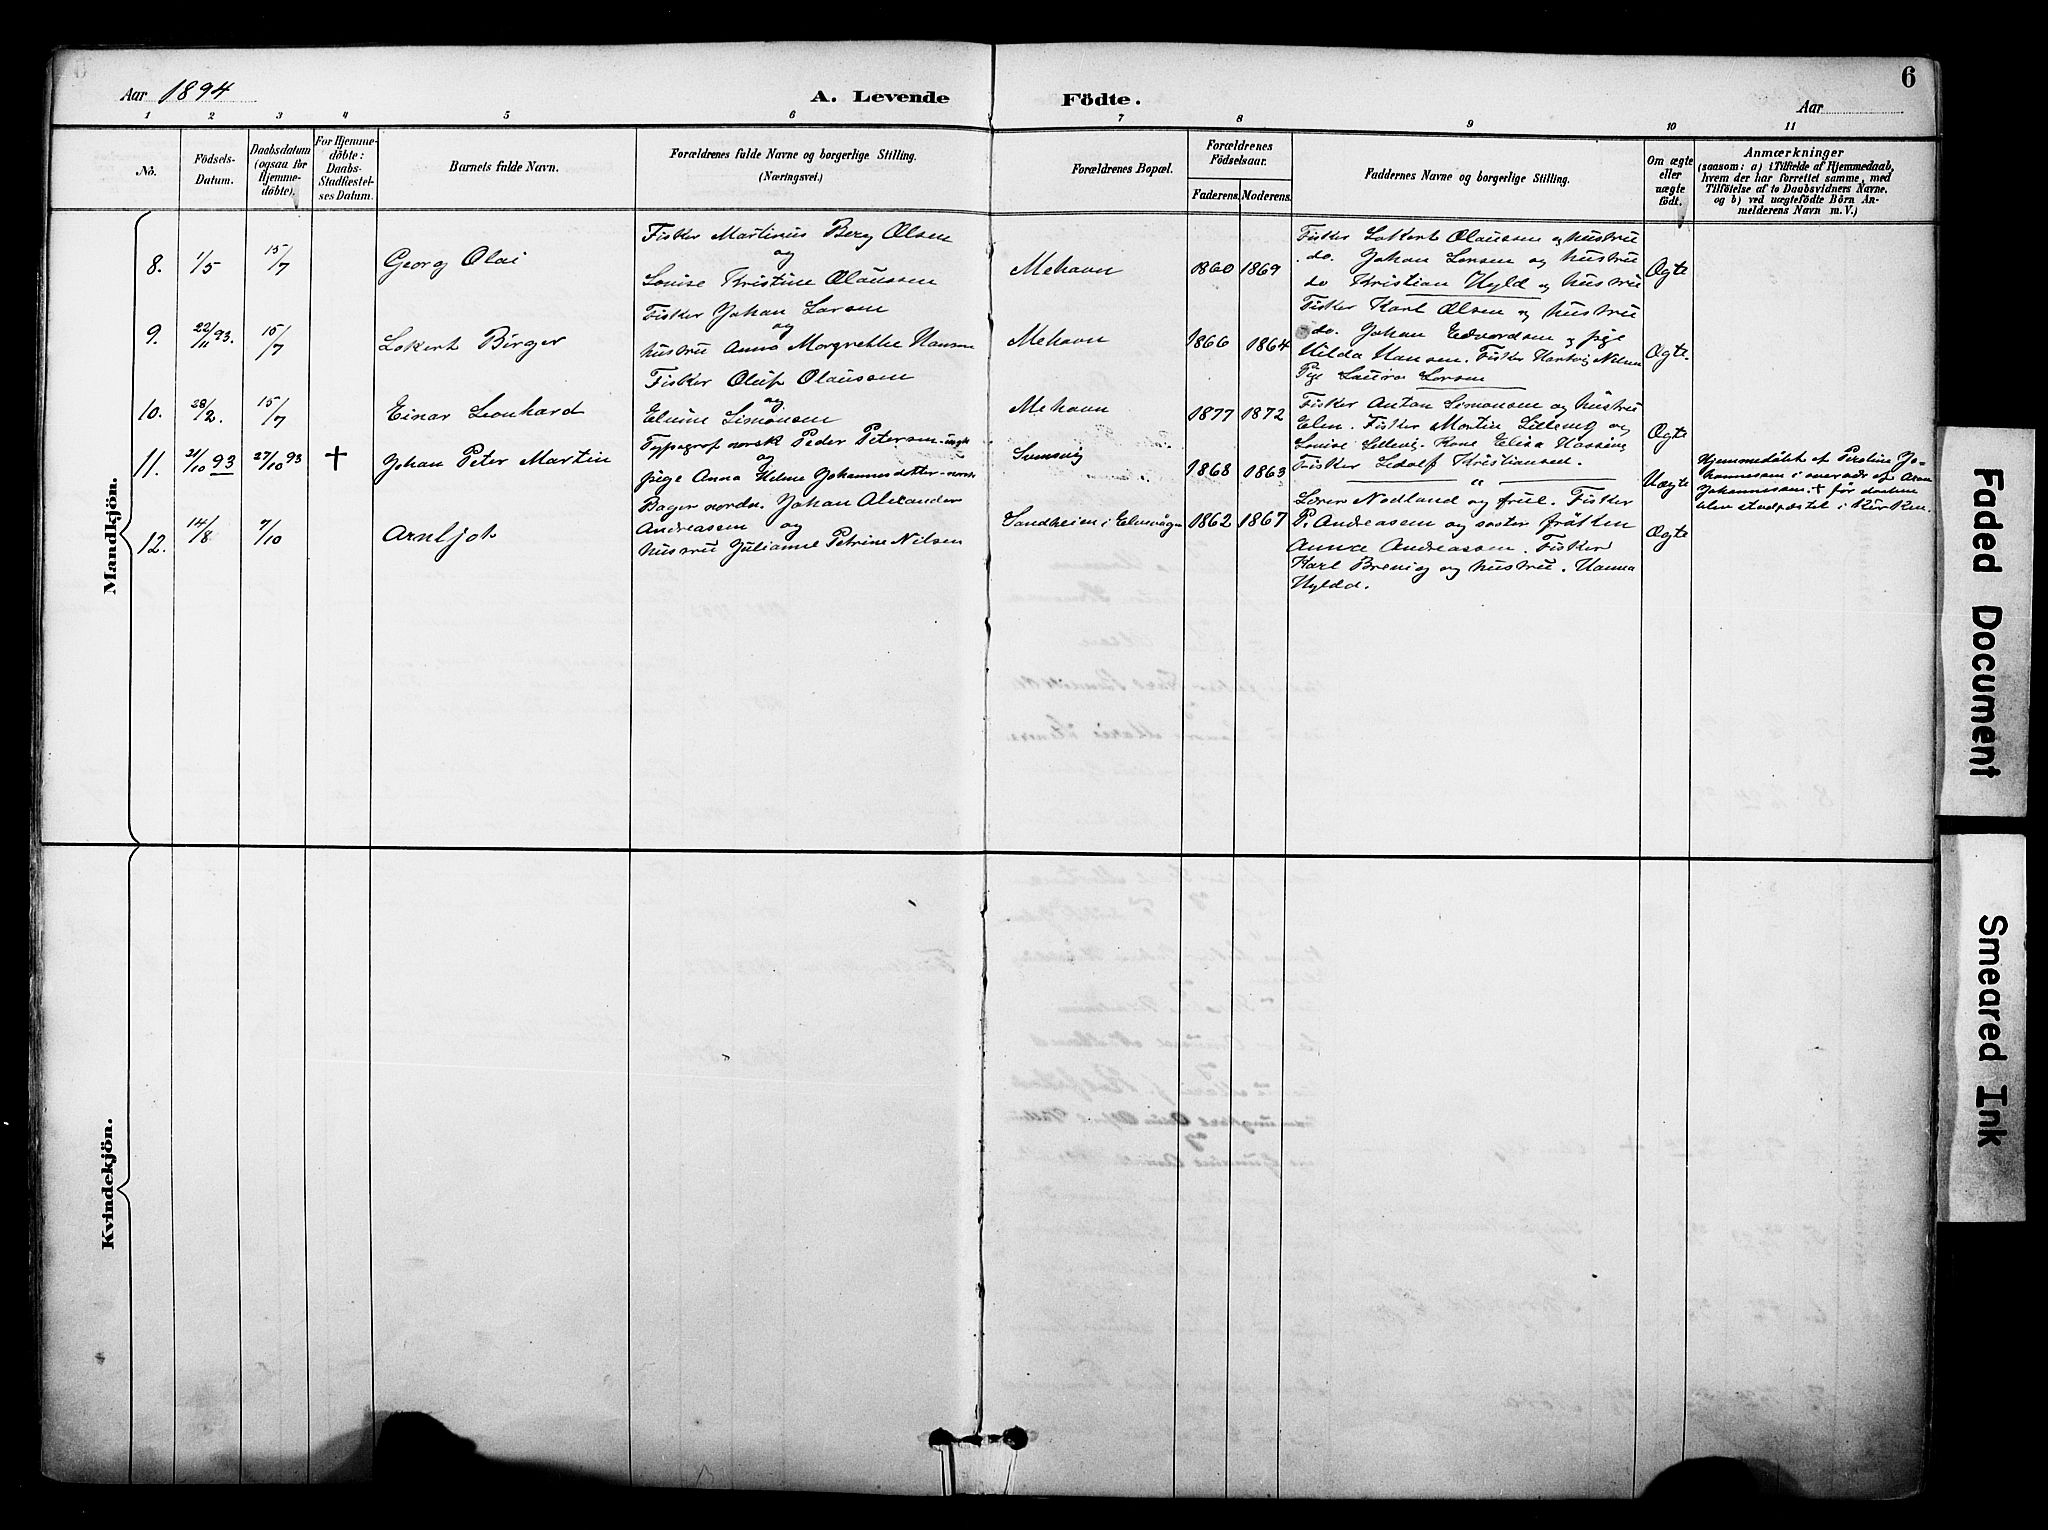 6
Aar 1894
A. Levende Födte.
Aar
1 2 3 4 5 6 7 8 9 10 11
No.
Födsels-
Datum.
Daabsdatum
(ogsaa för
Hjemme-
döbte).
For Hjemme-
döbte:
Daabs-
Stadfæstel-
ses Datum.
Barnets fulde Navn.
Forældrenes fulde Navne og borgerlige Stilling.
(Næringsvei.)
Forældrenes Bopæl.
Forældrenes
Födselsaar.
Faderens. Moderens.
Faddernes Navne og borgerlige Stilling.
Om ægte
eller
uægte
födt.
Anmærkninger
(saasom: a) i Tilfælde af Hjemmedaab,
hvem der har forrettet samme, med
Tilföielse af to Daabsvidners Navne.
og b) ved uægtefödte Börn An-
melderens Navn m. V.)
Mandkjön.
8. 1/5 15/7 Georg Olai
Fisker Martinus Berg Olsen
og
Louise Kristine Olaussen
Mehavn 1860 1869
Fisker Lokert Olaussen og hustru
do. Johan Larsen og hustru
do Kristian Hyld og hustru
Ægte
9. 22/11 93. 15/7 Lokert Birger
Fisker Johan Larsen
og
hustru Anna Margrethe Hansen
Mehavn 1866 1864
Fisker Karl Olsen og hustru
do. Johan Edvardsen og pige
Hilda Hansen. Fisker Hartvig Nilsen
Pige Laura Larsen
Ægte.
10. 28/2. 15/7 Einar Leonhard
Fisker Oluf Olaussen
og
Elvine Simonsen
Mehavn 1877 1872
Fisker Anton Simonsen og hustru
Elen. Fisker Martin Lillevig og
Louise Lillevig. Kone Elisa
Ægte
11. 21/10 93 27/10 93 † Johan Peter Martin
Typograf norsk Peder Petersen
og
pige Anna Helene Johannesdatter
1868 1863
Fisker Edolf Kristiansen.
"
Uægte
Hjemmedöbt af Peroline Jo-
hannessen i overvær af Aron
Johannessen. † før daaben
blev stadfæstet i Kirken.
12. 14/8 7/10 Arnljot
Bager nordm. Johan Alexander
Andreassen og
hustru Julianne Petrine Nilsen
Sandheim i 1862 1867
Lærer Nodland og frue. Fisker
P. Andreassen og søster frøken
Anna Andreassen. Fisker
Karl Brevig og hustru. Hanna
Hyldd.
Ægte
Kvindekjön.
Faded Document
Smeared Ink